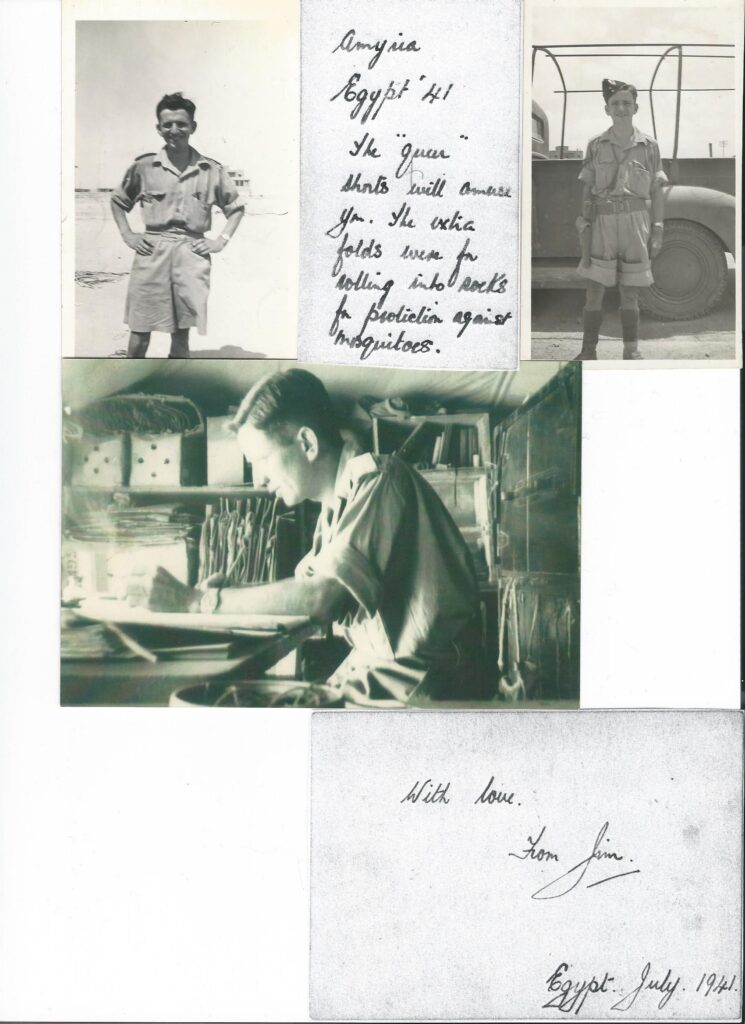 Amyria
Egypt '41
The "queer"
shorts will amuse
you. The extra
folds were for
rolling into socks
for protection against
mosquitoes.
With love.
From Jim.
Egypt. July. 1941.